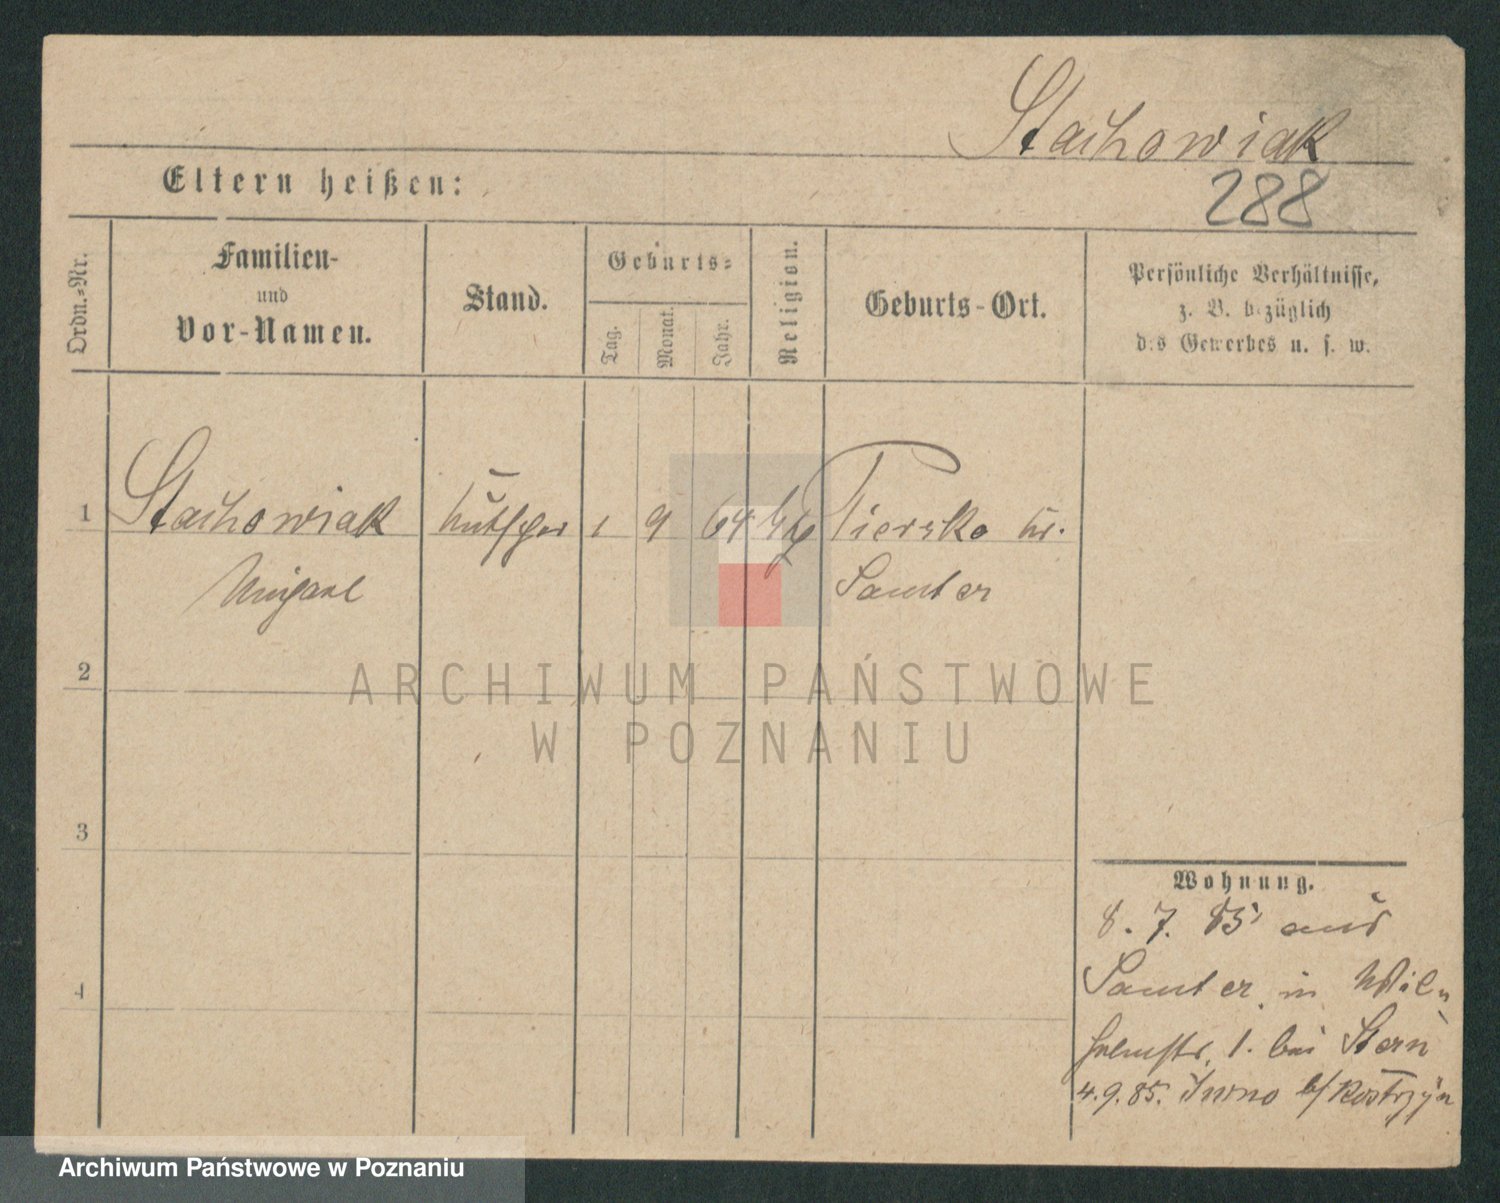 Stachowiak
Eltern heißen:
288
Ordn.=Nr.
Familien-
und
Vor-Namen.
Stand.
Geburts=
Tag.
Monat.
Jahr.
Religion.
Geburts-Ort.
Persönliche Verhältnisse,
z. B. bezüglich
des Gewerbes u. s. w.
1 Stachowiak Kutscher 1 9 64 kth Piersko Kr.
Michael Samter
2
3
4
Wohnung.
8. 7. 85 aus
Samter in Wil-
helmstr. 1. bei Stern
4.9.85. Iwno b/Kostrzyn
ARCHIWUM PAŃSTWOWE
W POZNANIU
Archiwum Państwowe w Poznaniu